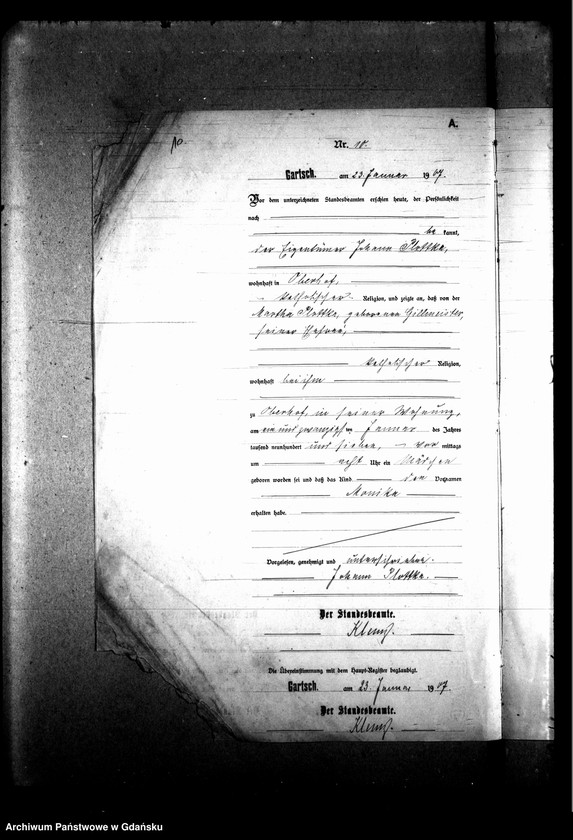 A.
10
Nr. 10.
Gartsch, am 23. Januar 1907.
Vor dem unterzeichneten Standesbeamten erschien heute, der Persönlichkeit
nach
be kannt,
der Eigentümer Johann Plottke,
wohnhaft in Oberhof,
katholischer Religion, und zeigte an, daß von der
Martha Plottke, geborenen Gillmeister,
seiner Ehefrau,
katholischer Religion,
wohnhaft bei ihm
zu Oberhof, in seiner Wohnung,
am ein und zwanzigsten Januar des Jahres
tausend neunhundert und sieben, vor mittags
um acht Uhr ein Mädchen
geboren worden sei und daß das Kind den Vornamen
Monika
erhalten habe.
Vorgelesen, genehmigt und unterschrieben.
Johann Plottke.
Der Standesbeamte.
Die Übereinstimmung mit dem Haupt-Register beglaubigt.
Gartsch, am 23. Januar 1907.
Der Standesbeamte.
Archiwum Państwowe w Gdańsku